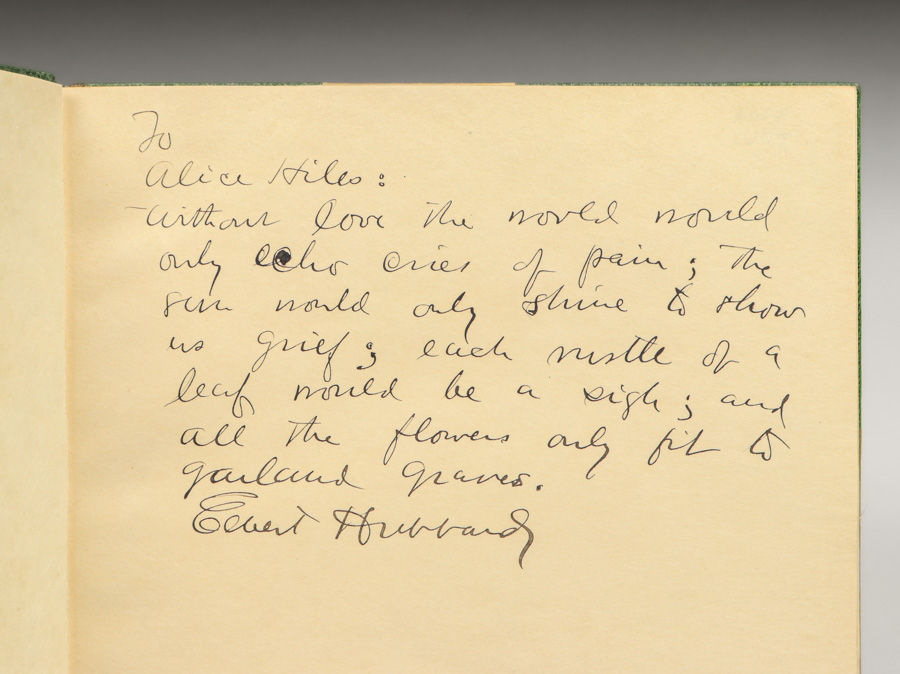 To
Alice Hiles:
Without love the world would
only echo cries of pain; the
sun would only shine to show
us grief; each rustle of a
leaf would be a sigh; and
all the flowers only fit to
garland graves.
Elbert Hubbard